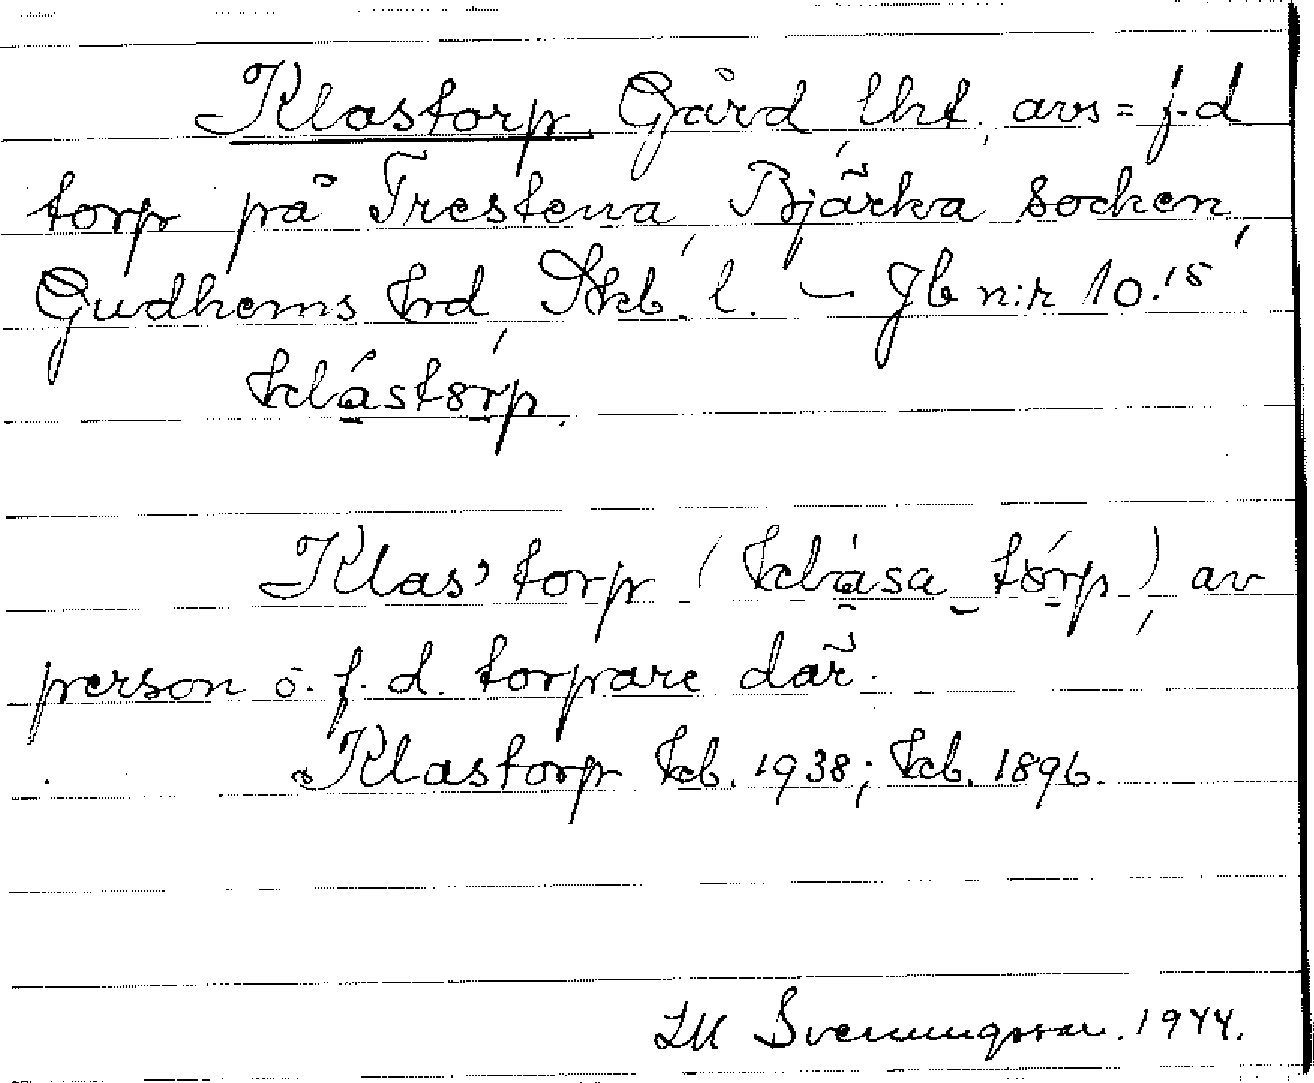 Klastorp Gård lht. avs = f.d
torp på Trestena, Bjärka socken,
Gudhems hrd, Skb. l. – Jb n:r 10.15
klástórp.
Klas' torp (klàsa_tórp), av
person o. f. d. torpare där.
Klastorp kb. 1938; kb. 1896.
LM Svenungsson. 1944.